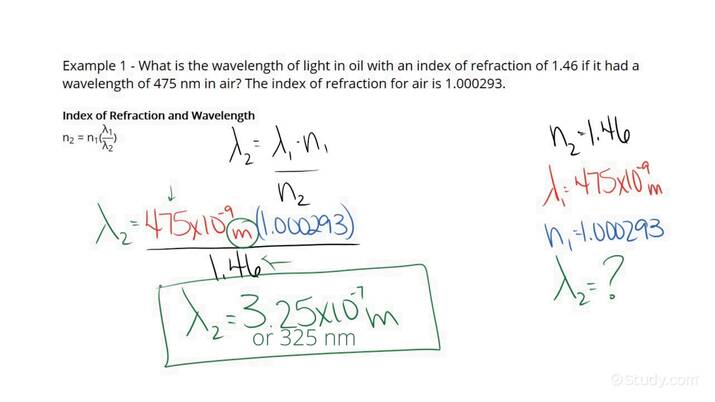 Example 1 - What is the wavelength of light in oil with an index of refraction of 1.46 if it had a
wavelength of 475 nm in air? The index of refraction for air is 1.000293.
Index of Refraction and Wavelength
n₂ = n₁(λ₁/λ₂)
λ₂ = λ₁·n₁
n₂
λ₂ = 475x10⁻⁹ m (1.000293)
1.46 ←
λ₂ = 3.25x10⁻⁷ m
or 325 nm
n₂ = 1.46
λ₁ = 475x10⁻⁹ m
n₁ = 1.000293
λ₂ = ?
©Study.com